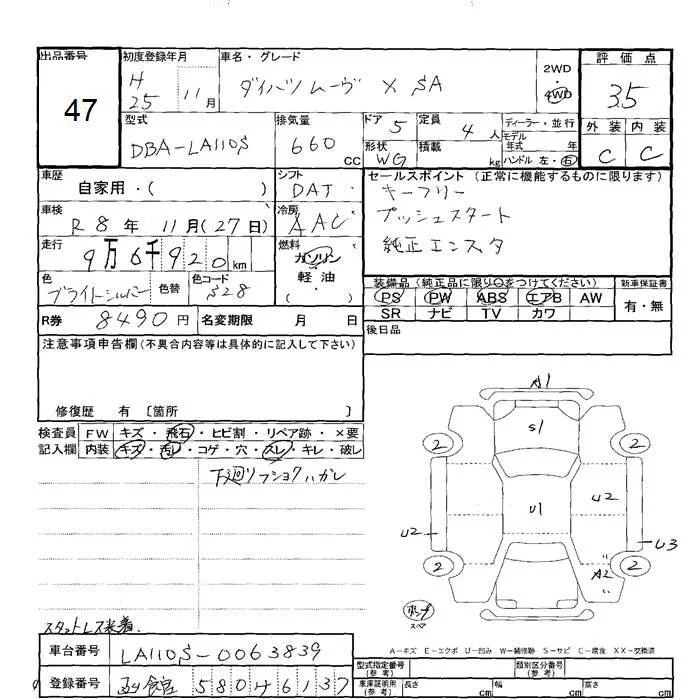 出品番号 47
初度登録年月 H 25 11 月
車名・グレード ダイハツ ムーヴ X SA
2WD ・ 4WD
評価点 3.5
外装 内装
C C
型式 DBA-LA110S
排気量 660 CC
ドア 5
定員 4 人
ディーラー・並行
モデル年式 年
形状 WG
積載 kg
ハンドル 左・右
車歴 自家用・( )
シフト DAT
セールスポイント (正常に機能するものに限ります)
キーフリー
プッシュスタート
純正エンスタ
車検 R 8 年 11 月 ( 27 日)
冷房 AAC
走行 9万6千920 km
燃料 ガソリン ・ 軽油 ・ ( )
色 ブライトシルバー 色替 色コード S28
装備品 (純正品に限り○をつけてください)
新車保証書
PS PW ABS エアB AW
有・無
SR ナビ TV カワ
R券 8490 円 名変期限 月 日
後日品
注意事項申告欄 (不具合内容等は具体的に記入して下さい)
修復歴 有 〔箇所 〕
検査員 FW キズ・飛石・ヒビ割・リペア跡・×要
記入欄 内装 キズ・汚レ・コゲ・穴・スレ・キレ・破レ
下廻リフショクハガレ
A1
S1
2 2
U1 U2
U2 U3
2 2
A2
ポンプ
スペア
A-キズ E-エクボ U-凹み W-補修跡 S-サビ C-腐食 XX-交換済
スタットレス装着.
車台番号 LA110S-0063839
登録番号 函館 580 サ 6137
型式指定番号 (参考)
類別区分番号 (参考)
車庫証明用 (参考) 長さ cm 幅 cm 高さ cm